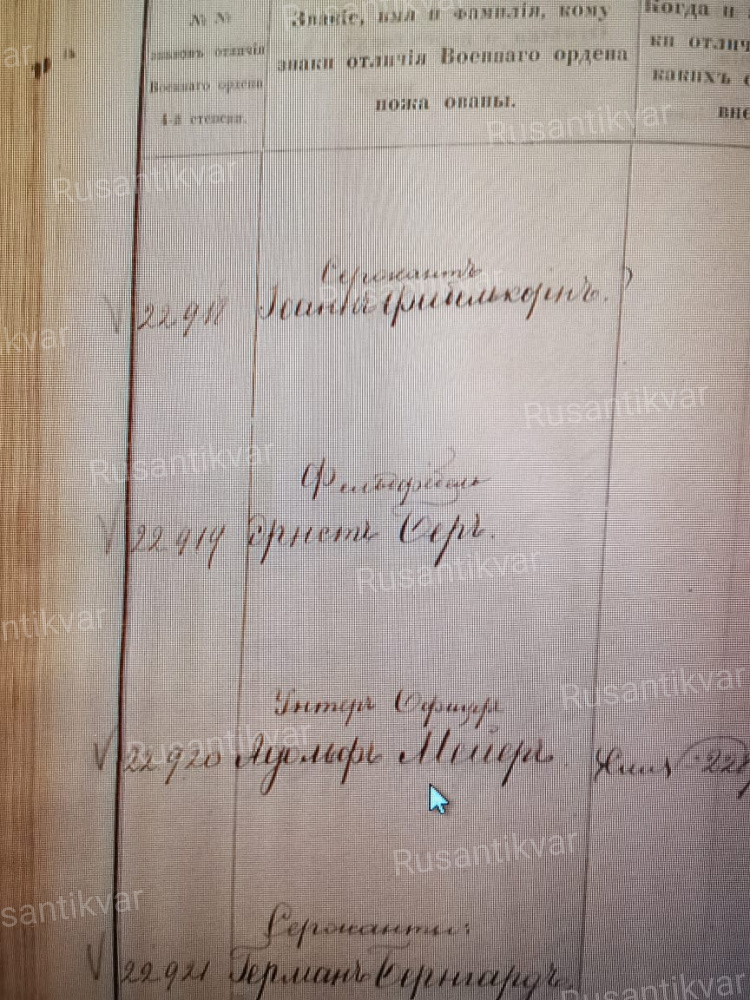 № №
знаковъ отличія
Военнаго ордена
4-й степени.
Званіе, имя и фамилія, кому
знаки отличія Военнаго ордена
пожа ованы.
Когда и
ки отлич
какихъ
вне
Сержантъ
22.918 Іоаннъ
Фельдфебель
22919 Эрнстъ Беръ.
Унтеръ Офицеръ
22920 Адольфъ Мейеръ.
Сержанты:
22921 Германъ Бернгардъ
Rusantikvar